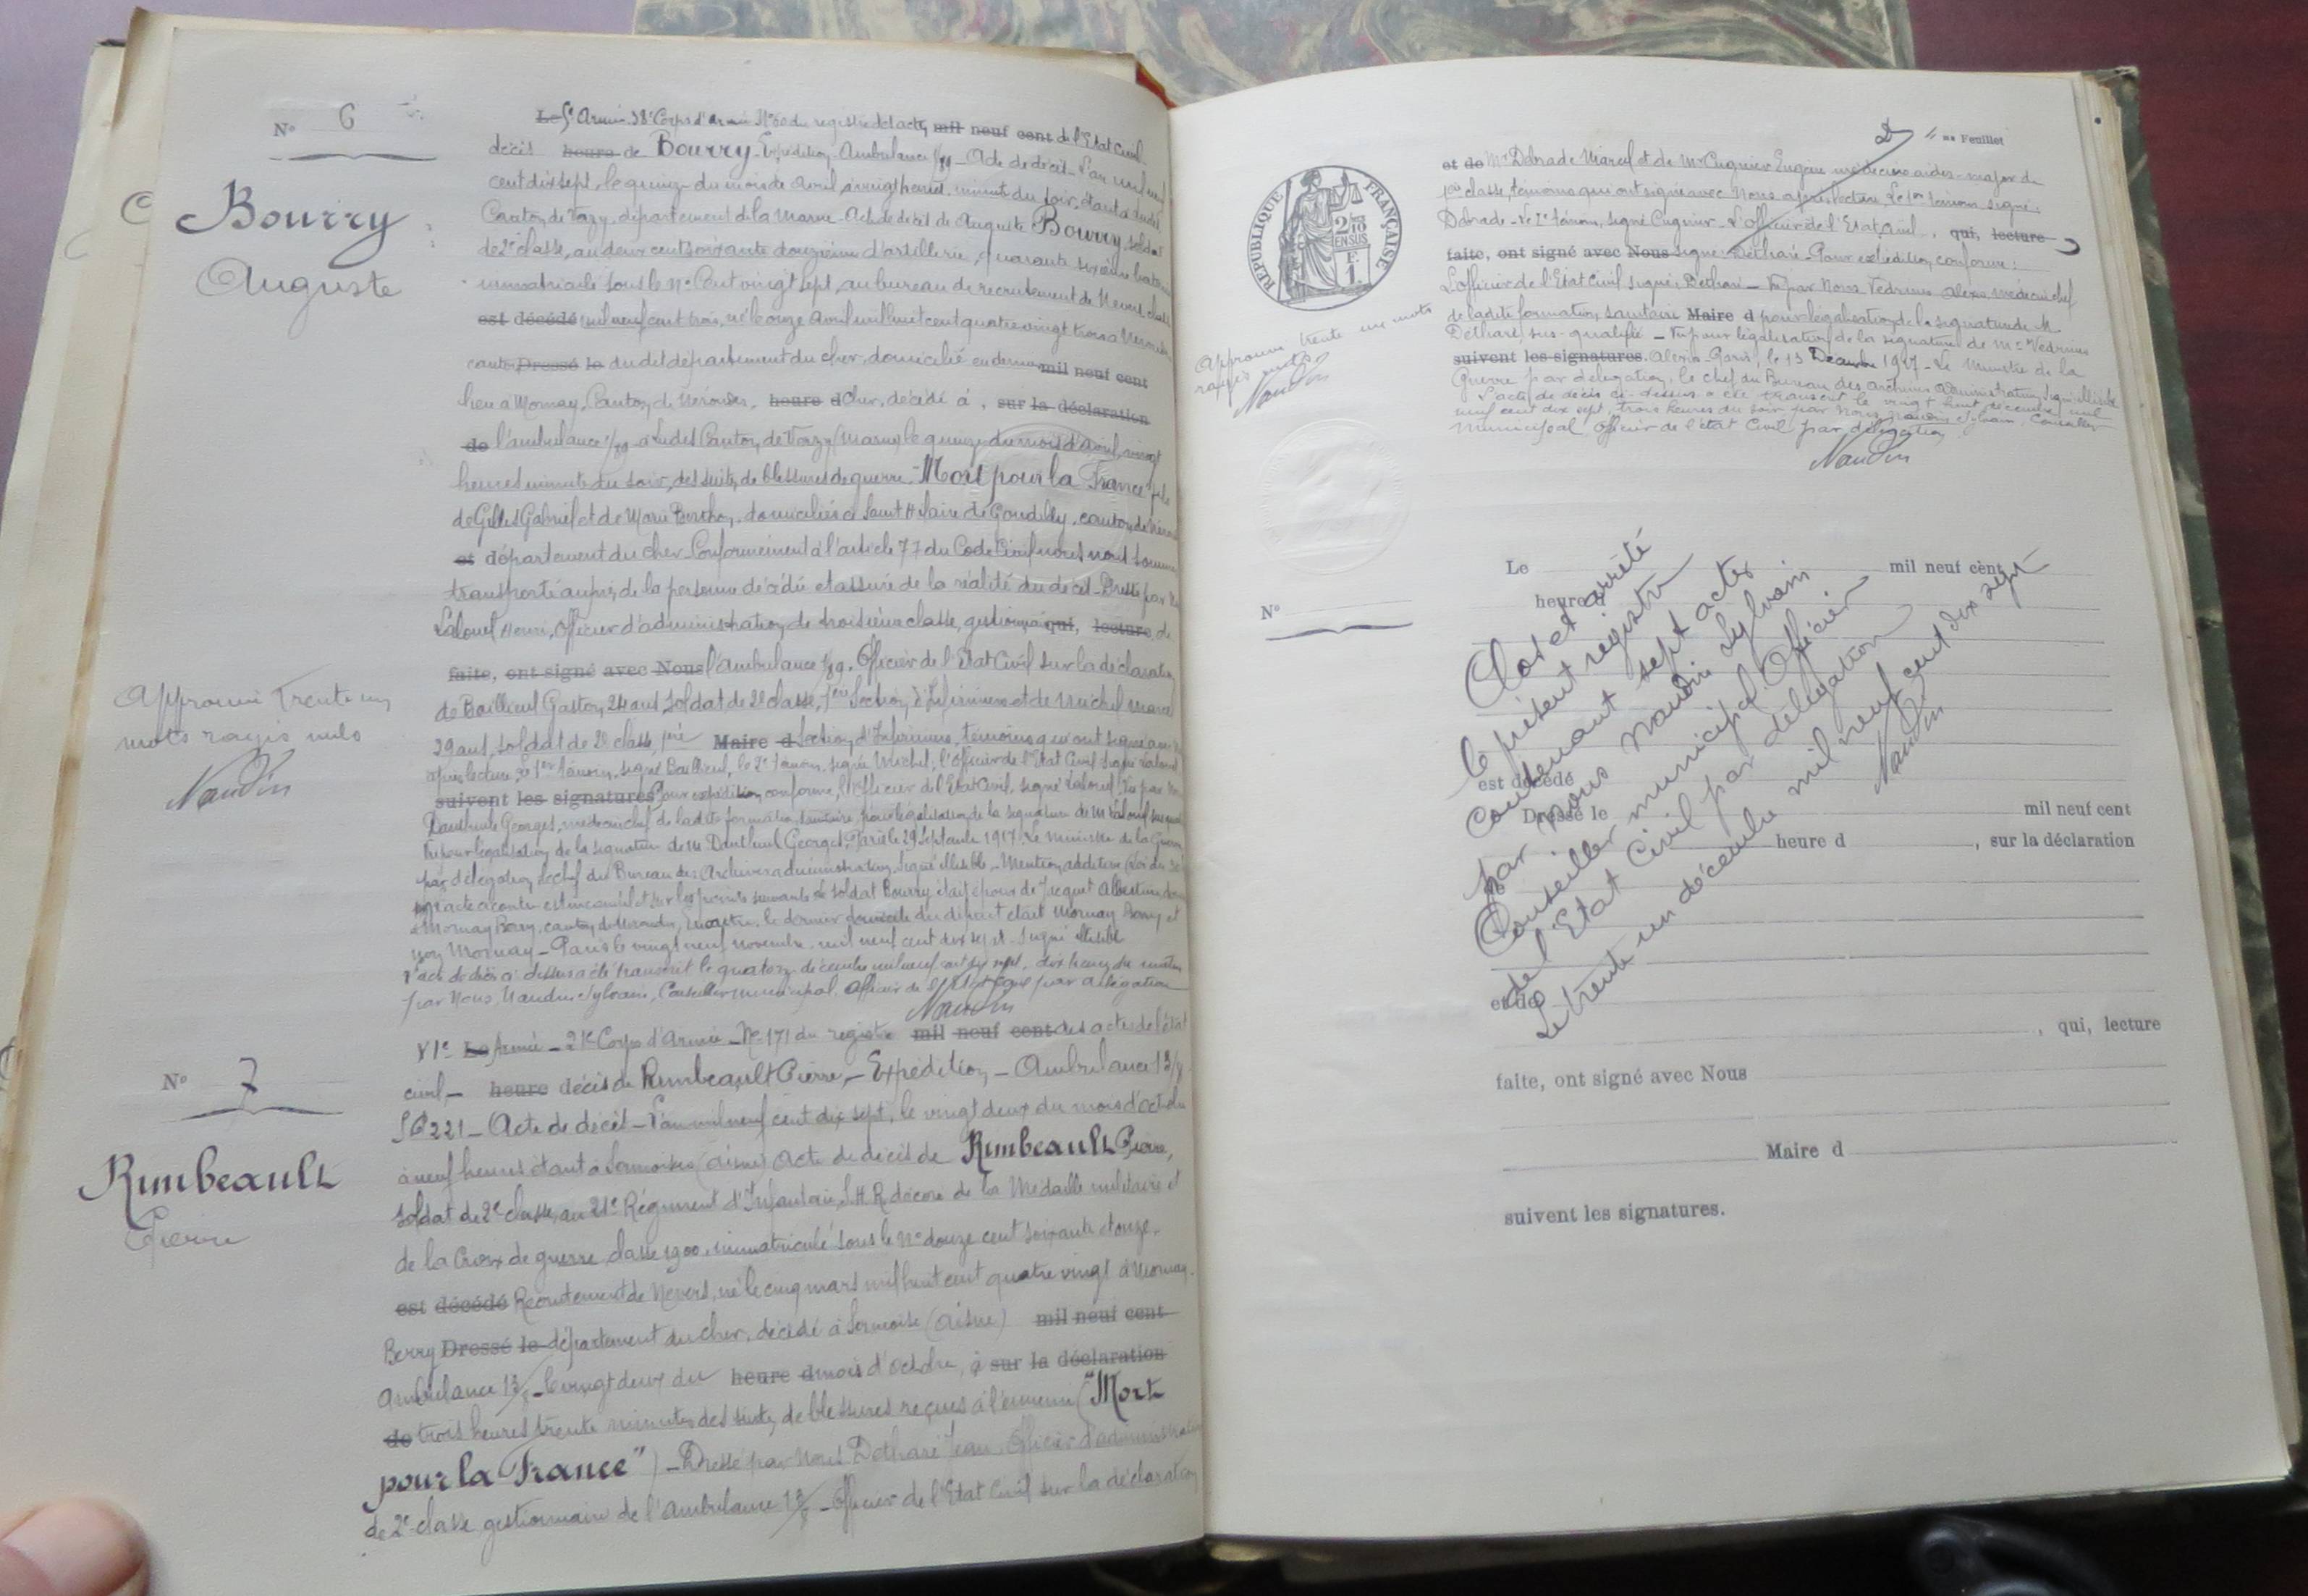 N° 6
Bourry
Auguste
Le 5e Armée 38e Corps d'Armée N° 60 du registre des actes mil neuf cent de l'Etat Civil
décès heure de Bourry - Expédition - Ambulance 1/89 - Acte de décès - L'an mil neuf
cent dix sept, le quinze du mois de avril, à vingt heures minute du soir, étant à Ludes
Canton de Verzy, département de la Marne - Acte de décès de Auguste Bourry, soldat
de 2e classe, au deux cent soixante douzième d'artillerie, quarante sixième batterie
immatriculé sous le N° Cent vingt sept, au bureau de recrutement de Nevers, classe
est décédé mil neuf cent trois, né le onze avril mil huit cent quatre vingt trois à
canton Dressé le dudit département du cher, domicilié en dernier mil neuf cent
lieu à Mornay, Canton de Nérondes, heure d Cher, décédé à , sur la déclaration
de l'ambulance 1/89 à Ludes Canton de Verzy (Marne) le quinze du mois d'avril, vingt
heures minute du soir, des suites de blessures de guerre "Mort pour la France" fils
de Gilles Gabriel et de Marie Berthon, domiciliés à Saint Hilaire de Gondilly, canton de
et département du Cher - Conformément à l'article 77 du Code Civil nous nous sommes
transporté auprès de la personne décédée et assuré de la réalité du décès - Dressé par
Lalouel Henri, Officier d'administration de troisième classe, gestionnaire qui, lecture, de
faite, ont signé avec Nous l'ambulance 1/89, Officier de l'Etat Civil sur la déclaration
de Bailleul Gaston, 24 ans, soldat de 2e classe, 1ère Section d'Infirmiers et de Michel Marcel
29 ans, soldat de 2e classe, 1ère Maire d Section d'Infirmiers, témoins qui ont signé avec
après lecture, Le 1er témoin, signé Bailleul, le 2e témoin, signé Michel, l'officier de l'Etat Civil signé Lalouel
suivent les signatures Pour expédition conforme, l'Officier de l'Etat Civil, signé Lalouel, Vu par
Georges, médecin chef de ladite formation sanitaire, pour légalisation de la signature de M Lalouel
Vu pour légalisation de la signature de M Georges, Paris le 29 septembre 1917. Le ministre de la Guerre
par délégation le chef du Bureau des Archives administratives, signé illisible - Mention additive
acte ci contre est incomplet sur les points suivants le soldat Bourry était époux de Jacquet
à Mornay Berry, canton de Nérondes, En outre, le dernier domicile du défunt était Mornay Berry et
non Mornay - Paris le vingt neuf novembre, mil neuf cent dix sept - signé illisible
L'acte de décès ci dessus a été transcrit le quatorze décembre mil neuf cent dix sept, dix heures du matin
par Nous, Naudin Sylvain, Conseiller municipal, Officier de l'Etat Civil par délégation
Naudin
Approuvé trente un
mots rayés nuls
Naudin
N° 7
Rimbeault
Pierre
VIe Le Armée - 21e Corps d'Armée - N° 171 du registre mil neuf cent des actes de l'état
civil - heure décès de Rimbeault Pierre - Expédition - Ambulance 13/8
S P 221 - Acte de décès - L'an mil neuf cent dix sept, le vingt deux du mois d'octobre
à neuf heures étant à Sermoise (Aisne) Acte de décès de Rimbeault Pierre,
soldat de 2e classe, au 21e Régiment d'Infanterie, S.H.R. décoré de la Médaille militaire et
de la Croix de guerre, classe 1900, immatriculé sous le N° douze cent soixante et onze -
est décédé Recrutement de Nevers, né le cinq mars mil huit cent quatre vingt à Mornay -
Berry Dressé le département du cher, décédé à Sermoise (Aisne) mil neuf cent
Ambulance 13/8 - le vingt deux du heure d mois d'octobre, à sur la déclaration
de trois heures trente minutes des suites de blessures reçues à l'ennemi ("Mort
pour la France") - Dressé par Nous Dethare Jean, Officier d'administration
de 2e classe gestionnaire de l'ambulance 13/8 - Officier de l'Etat Civil sur la déclaration
2 me Feuillet
RÉPUBLIQUE FRANÇAISE
2/10 EN SUS
F. 1
et de Mr Debrade Marcel et de Mr Cugnier Eugène médecins aides-major de
1ère classe, témoins qui ont signé avec Nous après lecture. Le 1er témoin signé:
Debrade - Le 2e témoin, signé Cugnier - L'officier de l'Etat Civil, qui, lecture
faite, ont signé avec Nous signé Dethare - Pour expédition conforme:
L'officier de l'Etat Civil signé: Dethare - Vu par Nous Vedrines Alexis médecin chef
de ladite formation sanitaire Maire d pour légalisation de la signature de M.
Dethare, sus-qualifié - Vu pour légalisation de la signature de Mr Vedrines
suivent les signatures. Alexis - Paris, le 13 Décembre 1917 - Le Ministre de la
Guerre par délégation, le chef du Bureau des archives administratives, signé illisible
L'acte de décès ci-dessus a été transcrit le vingt huit décembre mil
neuf cent dix sept, trois heures du soir par Nous, Naudin Sylvain, Conseiller
municipal, Officier de l'état Civil par délégation
Naudin
Approuvé trente un mots
rayés nuls
Naudin
N°
Le mil neuf cent
heure d
est décédé
Dressé le mil neuf cent
heure d , sur la déclaration
de
et de
, qui, lecture
faite, ont signé avec Nous
Maire d
suivent les signatures.
Clos et arrêté
le présent registre
contenant sept actes
par nous Naudin Sylvain
Conseiller municipal Officier
de l'Etat Civil par délégation
Le trente un décembre mil neuf cent dix sept
Naudin